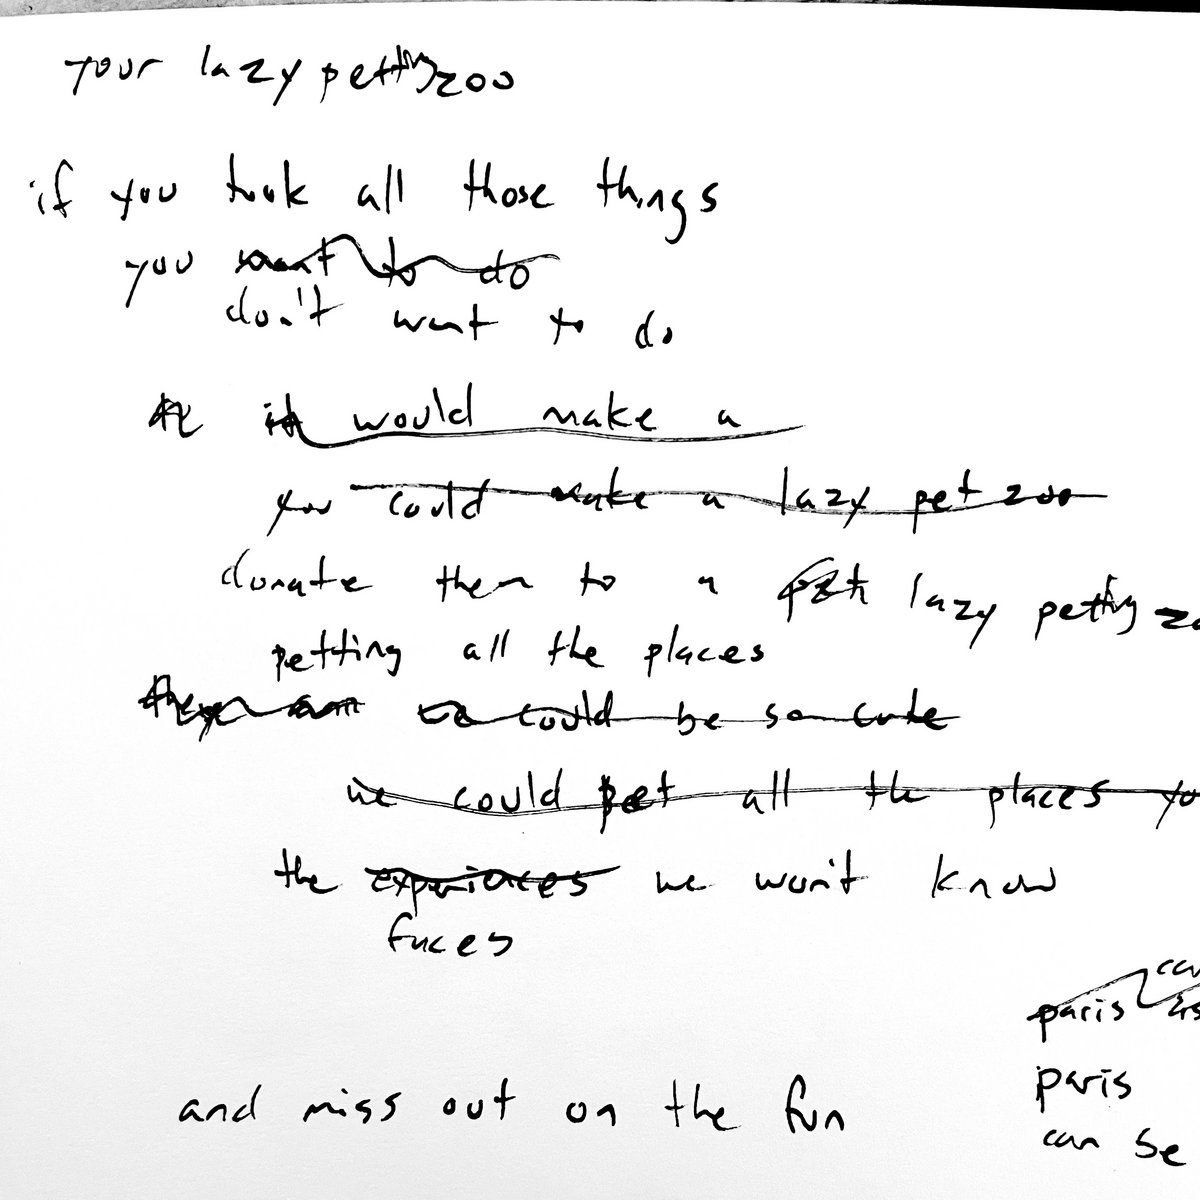 your lazy petting zoo
if you took all those things
you want to do
don't want to do
it would make a
you could make a lazy pet zoo
donate them to a pet lazy petting zo
petting all the places
they could be so cute
we could pet all the places yo
the experiences we won't know
faces
paris
paris
and miss out on the fun
can be